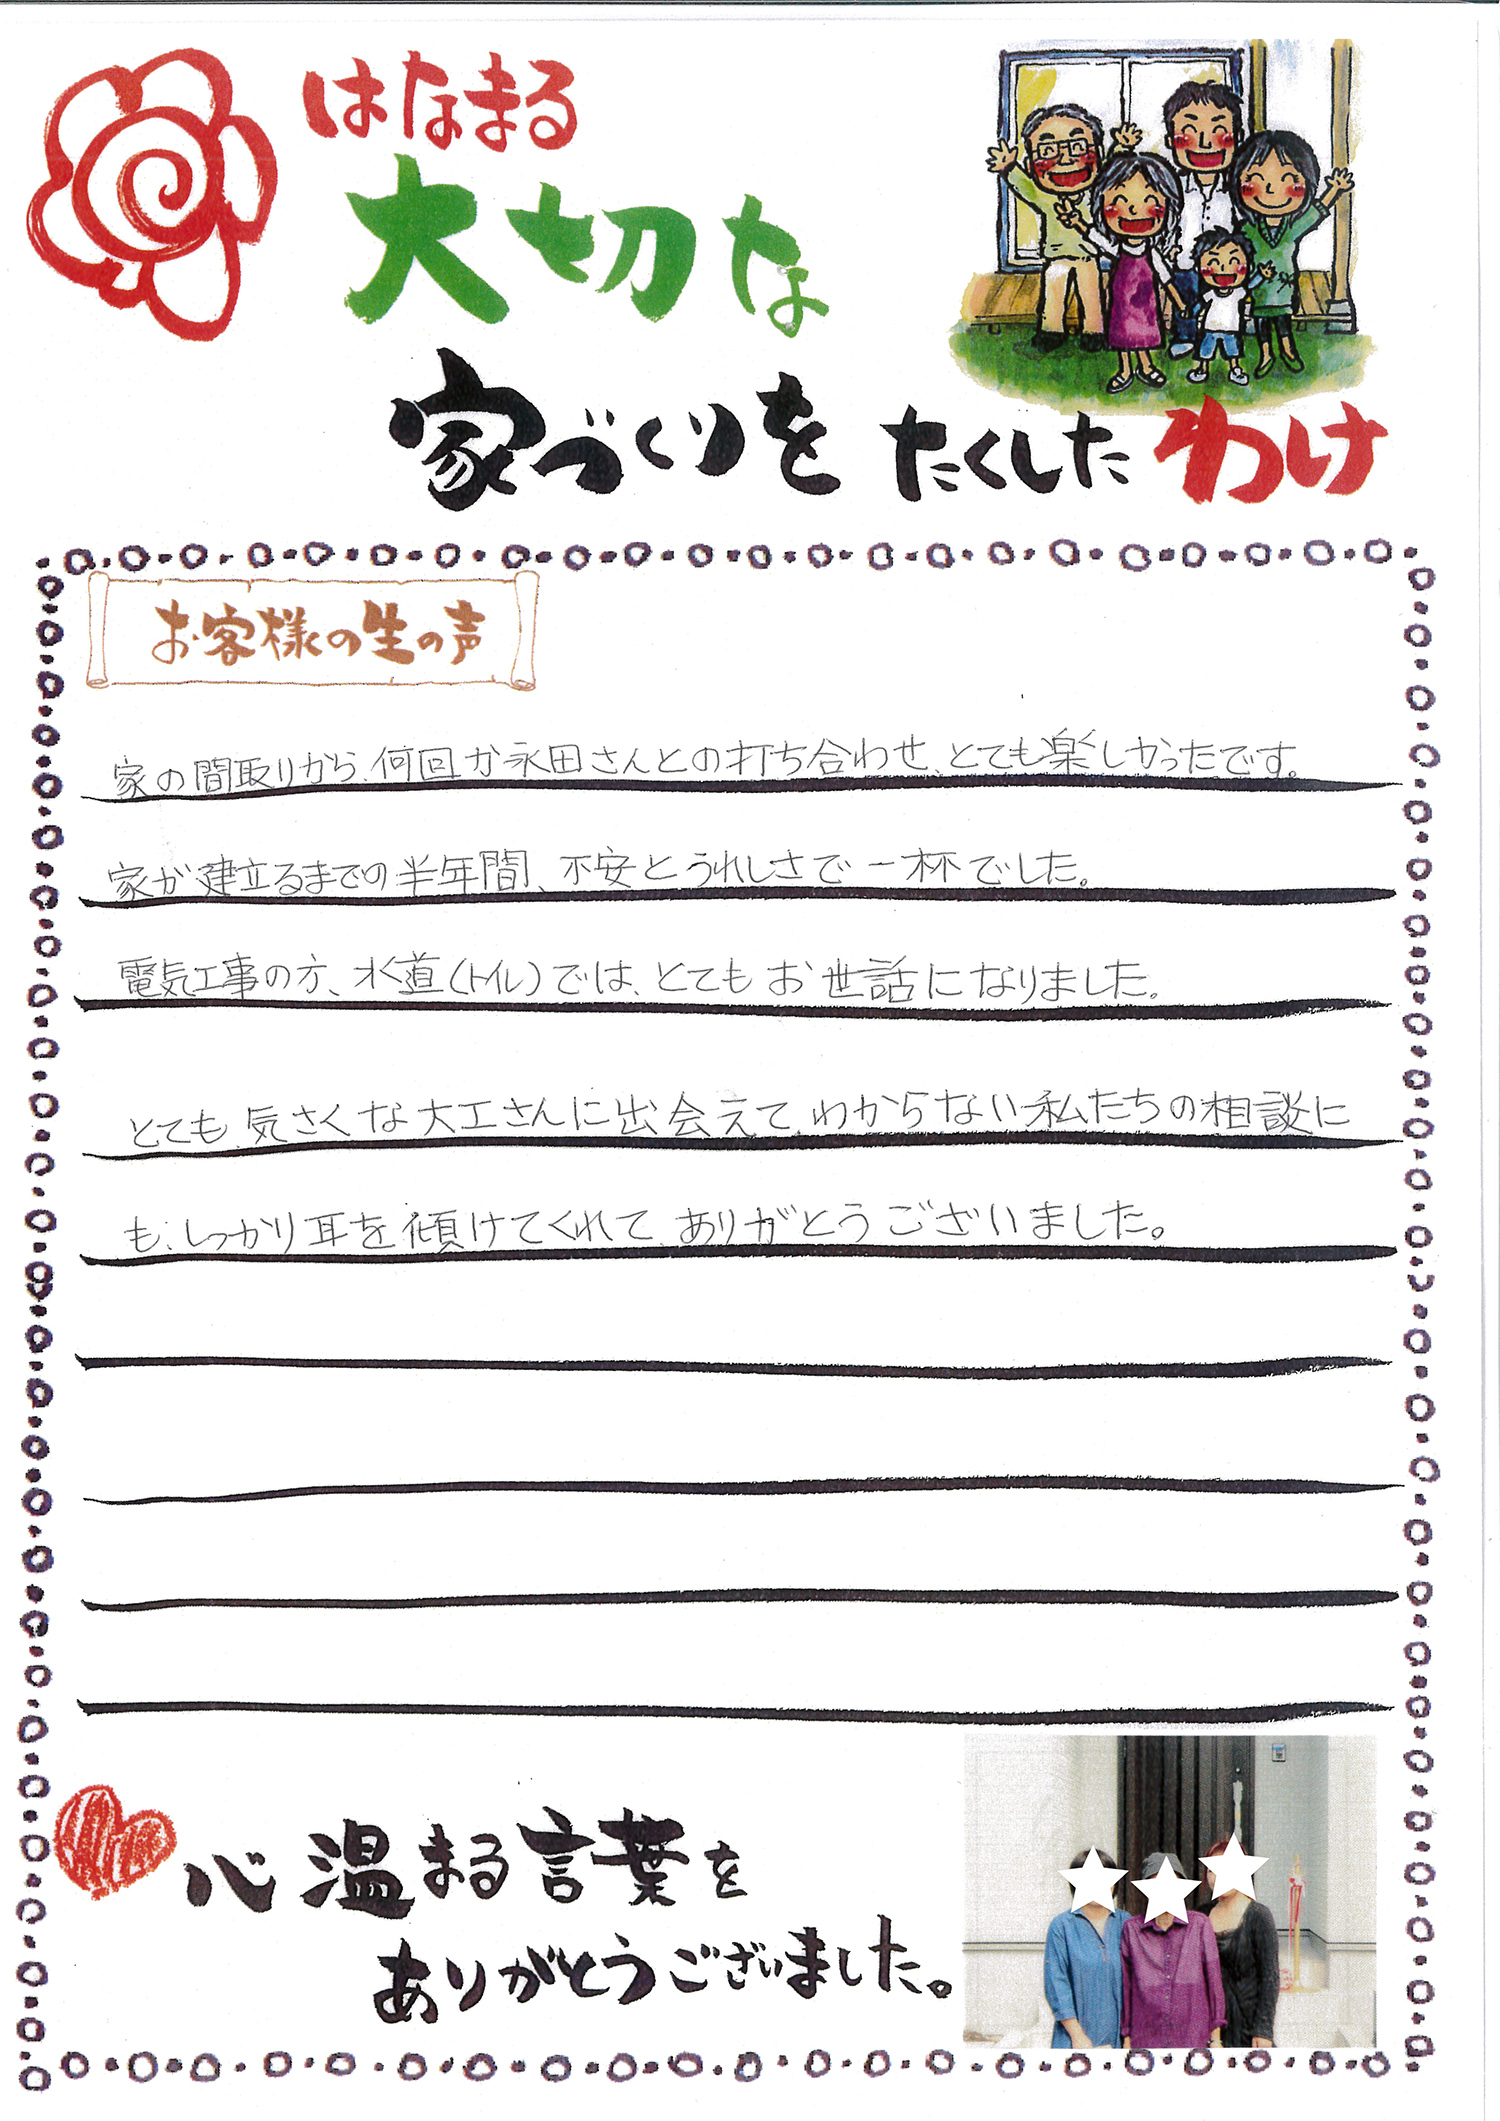 はなまる
大切な
家づくりを たくした わけ
お客様の生の声
家の間取りから、何回か永田さんとの打ち合わせ、とても楽しかったです。
家が建立るまでの半年間、不安とうれしさで一杯でした。
電気工事の方、水道(トイレ)では、とてもお世話になりました。
とても、気さくな大工さんに出会えて、わからない私たちの相談に
も、しっかり耳を傾けてくれて、ありがとうございました。
心温まる言葉を
ありがとうございました。